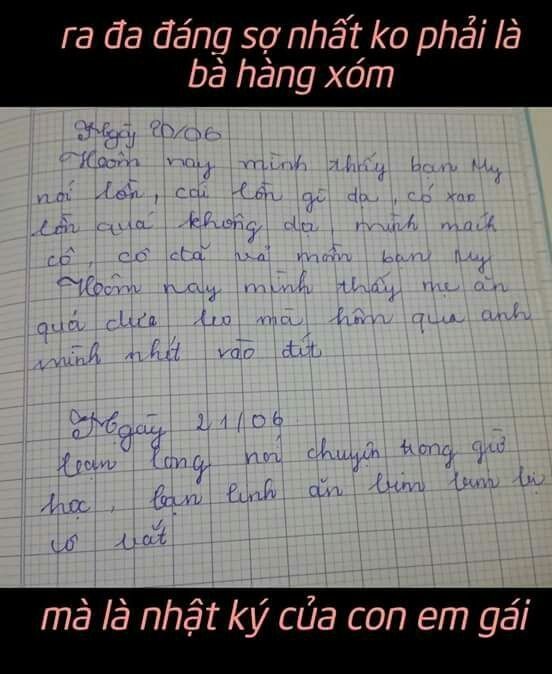 ra đa đáng sợ nhất ko phải là
bà hàng xóm
Ngày 20/06
Hoôm nay mình thấy bạn My
nói lồn, cái lồn gì dạ, có xạo
lồn quá không dạ, mình mách
cô, cô đã vả mồm bạn My
Hoôm nay mình thấy mẹ ăn
quả dưa leo mà hôm qua anh
mình nhét vào đít
Ngày 21/06
bạn long nói chuyện trong giờ
học, bạn linh ăn bim bim bị
cô vất
mà là nhật ký của con em gái